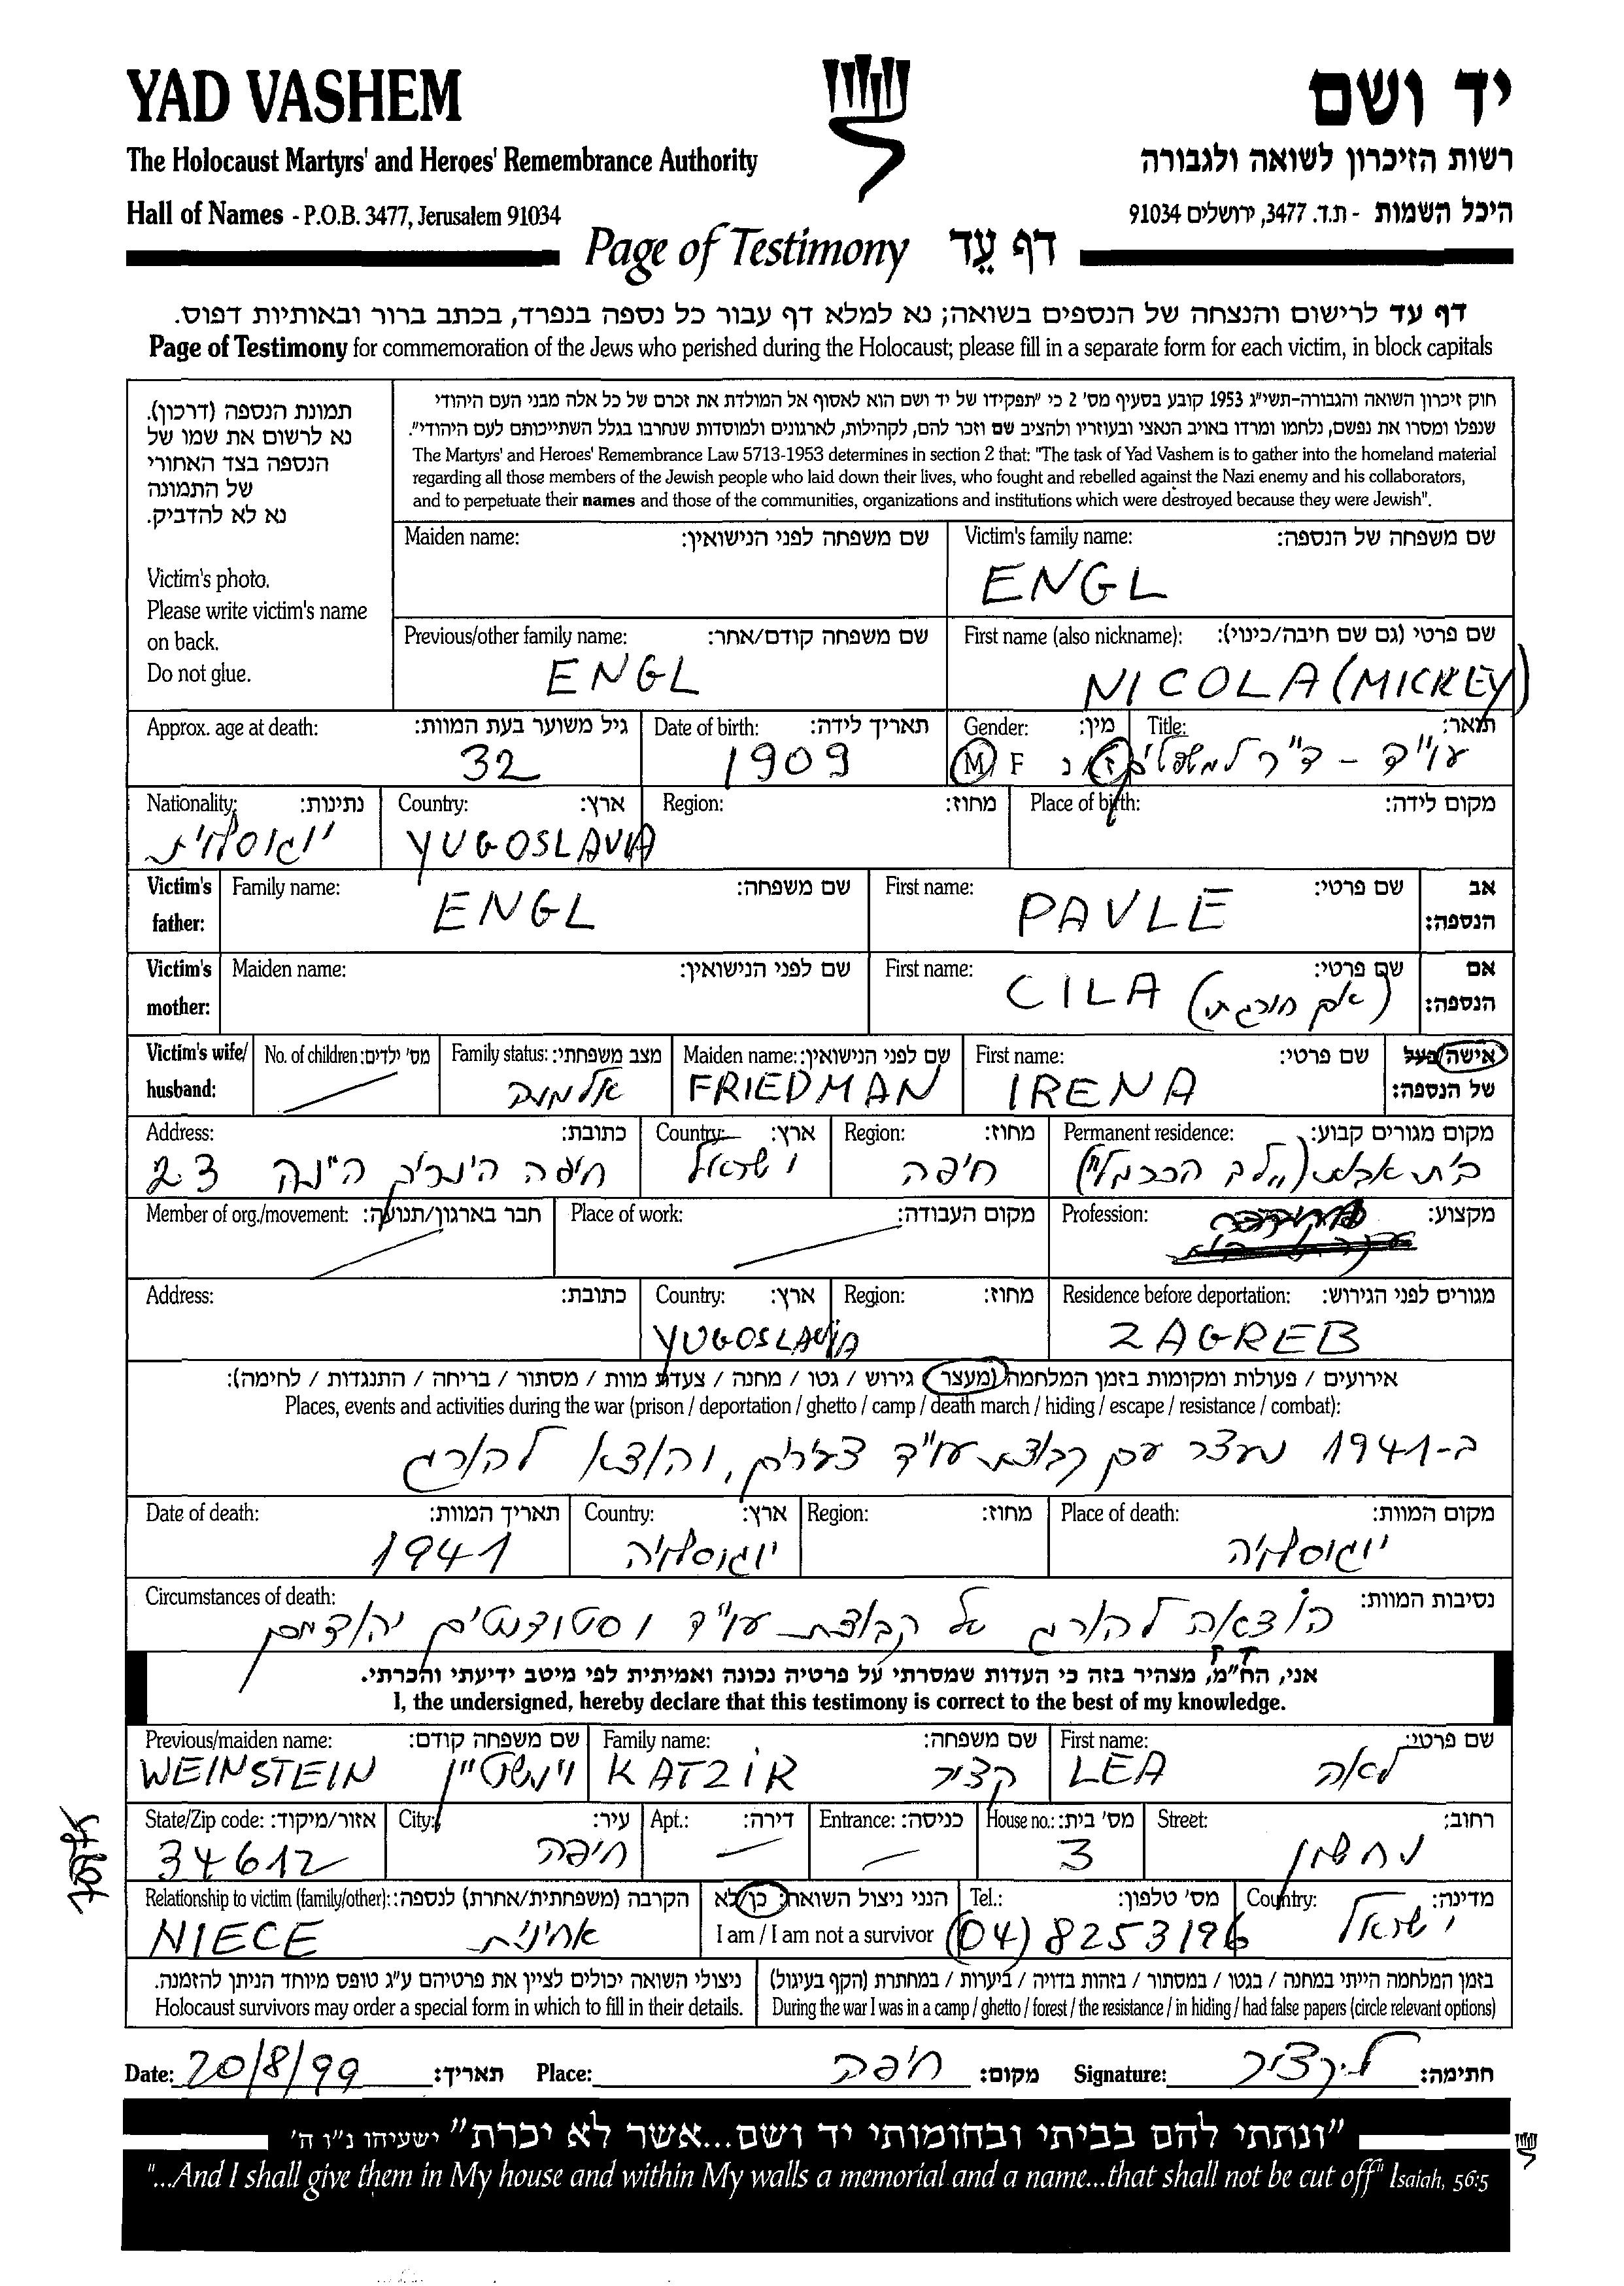 YAD VASHEM
יד ושם
The Holocaust Martyrs' and Heroes' Remembrance Authority
רשות הזיכרון לשואה ולגבורה
Hall of Names - P.O.B. 3477, Jerusalem 91034
היכל השמות - ת.ד. 3477, ירושלים 91034
Page of Testimony דף עֵד
דף עד לרישום והנצחה של הנספים בשואה; נא למלא דף עבור כל נספה בנפרד, בכתב ברור ובאותיות דפוס.
Page of Testimony for commemoration of the Jews who perished during the Holocaust; please fill in a separate form for each victim, in block capitals
תמונת הנספה (דרכון).
נא לרשום את שמו של
הנספה בצד האחורי
של התמונה
נא לא להדביק.
Victim's photo.
Please write victim's name
on back.
Do not glue.
חוק זיכרון השואה והגבורה-תשי"ג 1953 קובע בסעיף מס' 2 כי "תפקידו של יד ושם הוא לאסוף אל המולדת את זכרם של כל אלה מבני העם היהודי
שנפלו ומסרו את נפשם, נלחמו ומרדו באויב הנאצי ובעוזריו ולהציב שם וזכר להם, לקהילות, לארגונים ולמוסדות שנחרבו בגלל השתייכותם לעם היהודי".
The Martyrs' and Heroes' Remembrance Law 5713-1953 determines in section 2 that: "The task of Yad Vashem is to gather into the homeland material
regarding all those members of the Jewish people who laid down their lives, who fought and rebelled against the Nazi enemy and his collaborators,
and to perpetuate their names and those of the communities, organizations and institutions which were destroyed because they were Jewish".
Maiden name: שם משפחה לפני הנישואין:
Victim's family name: שם משפחה של הנספה:
ENGL
Previous/other family name: שם משפחה קודם/אחר:
ENGL
First name (also nickname): שם פרטי (גם שם חיבה/כינוי):
NICOLA (MICKEY)
Approx. age at death: גיל משוער בעת המוות:
32
Date of birth: תאריך לידה:
1909
Gender: מין:
M F ז נ
Title: תואר:
עו"ד - ד"ר למשפטים
Nationality: נתינות:
יוגוסלוית
Country: ארץ:
YUGOSLAVIA
Region: מחוז:
Place of birth: מקום לידה:
Victim's father:
Family name: שם משפחה:
ENGL
First name: שם פרטי:
PAVLE
אב הנספה:
Victim's mother:
Maiden name: שם לפני הנישואין:
First name: שם פרטי:
CILA (אם חורגת)
אם הנספה:
Victim's wife/ husband:
No. of children: מס' ילדים:
Family status: מצב משפחתי:
אלמנה
Maiden name: שם לפני הנישואין:
FRIEDMAN
First name: שם פרטי:
IRENA
אישה/בעל של הנספה:
Address: כתובת:
חיפה היינריך היינה 23
Country: ארץ:
ישראל
Region: מחוז:
חיפה
Permanent residence: מקום מגורים קבוע:
בית אבות ("לב הכרמל")
Member of org./movement: חבר בארגון/תנועה:
Place of work: מקום העבודה:
Profession: מקצוע:
Address: כתובת:
Country: ארץ:
YUGOSLAVIA
Region: מחוז:
Residence before deportation: מגורים לפני הגירוש:
ZAGREB
אירועים / פעולות ומקומות בזמן המלחמה (מעצר / גירוש / גטו / מחנה / צעדת מוות / מסתור / בריחה / התנגדות / לחימה):
Places, events and activities during the war (prison / deportation / ghetto / camp / death march / hiding / escape / resistance / combat):
ב-1941 נעצר עם קבוצת עו"ד צעירים, והוצא להורג
Date of death: תאריך המוות:
1941
Country: ארץ:
יוגוסלויה
Region: מחוז:
Place of death: מקום המוות:
יוגוסלויה
Circumstances of death: נסיבות המוות:
הוצאה להורג של קבוצת עו"ד וסטודנטים יהודים
אני, הח"מ, מצהיר בזה כי העדות שמסרתי על פרטיה נכונה ואמיתית לפי מיטב ידיעתי והכרתי.
I, the undersigned, hereby declare that this testimony is correct to the best of my knowledge.
Previous/maiden name: שם משפחה קודם:
WEINSTEIN ויינשטיין
Family name: שם משפחה:
KATZIR קציר
First name: שם פרטי:
LEA לאה
State/Zip code: אזור/מיקוד:
34612
City: עיר:
חיפה
Apt.: דירה:
Entrance: כניסה:
House no.: מס' בית:
3
Street: רחוב:
נחשון
Relationship to victim (family/other): הקרבה (משפחתית/אחרת) לנספה:
NIECE אחינית
הנני ניצול השואה: כן/לא
I am / I am not a survivor
Tel.: מס' טלפון:
(04) 8253196
Country: מדינה:
ישראל
ניצולי השואה יכולים לציין את פרטיהם ע"ג טופס מיוחד הניתן להזמנה.
Holocaust survivors may order a special form in which to fill in their details.
בזמן המלחמה הייתי במחנה / בגטו / במסתור / בזהות בדויה / ביערות / במחתרת (הקף בעיגול)
During the war I was in a camp / ghetto / forest / the resistance / in hiding / had false papers (circle relevant options)
Date: 20/8/99 תאריך:
Place: חיפה מקום:
Signature: ל. קציר חתימה:
"ונתתי להם בביתי ובחומותי יד ושם...אשר לא יכרת" ישעיהו נ"ו ה'
"...And I shall give them in My house and within My walls a memorial and a name...that shall not be cut off" Isaiah, 56:5